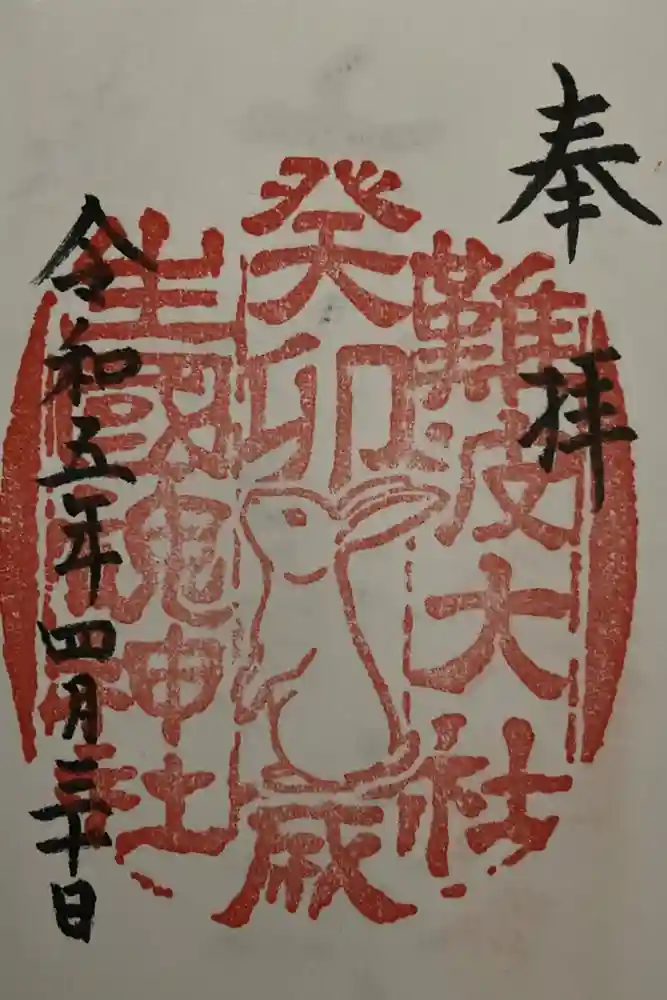 奉拝
難波大社
癸卯歳
生國魂神社
令和五年四月三十日